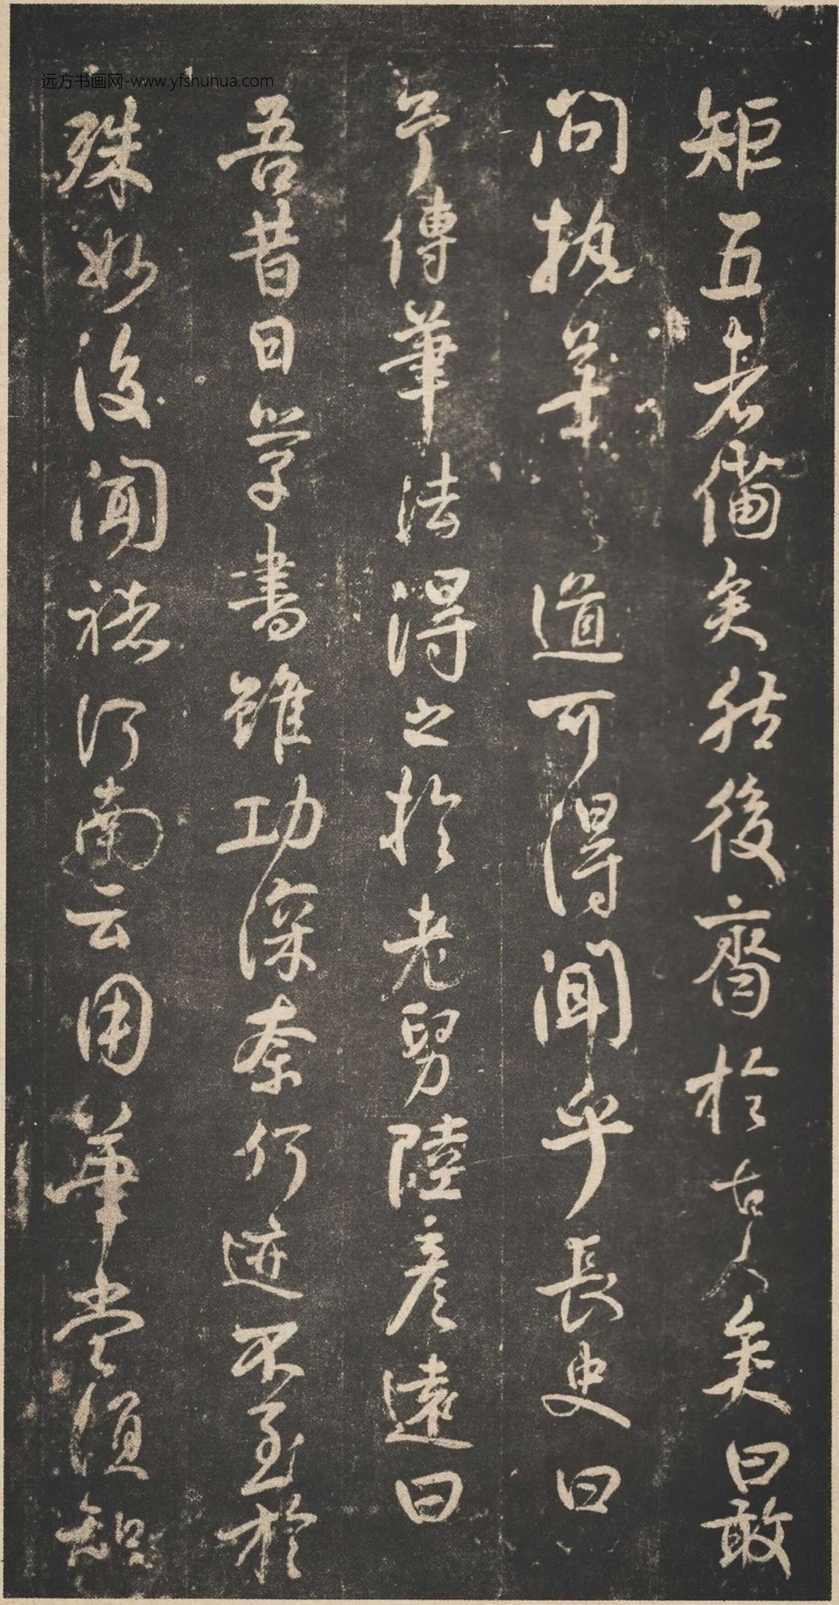 远方书画网-www.yfshuhua.com
矩五者備矣然後齊於古人矣曰敢
問執筆之道可得聞乎長史曰
予傳筆法得之於老舅陸彦遠曰
吾昔日學書雖功深奈何迹不至於
殊妙後聞褚河南云用筆當須知